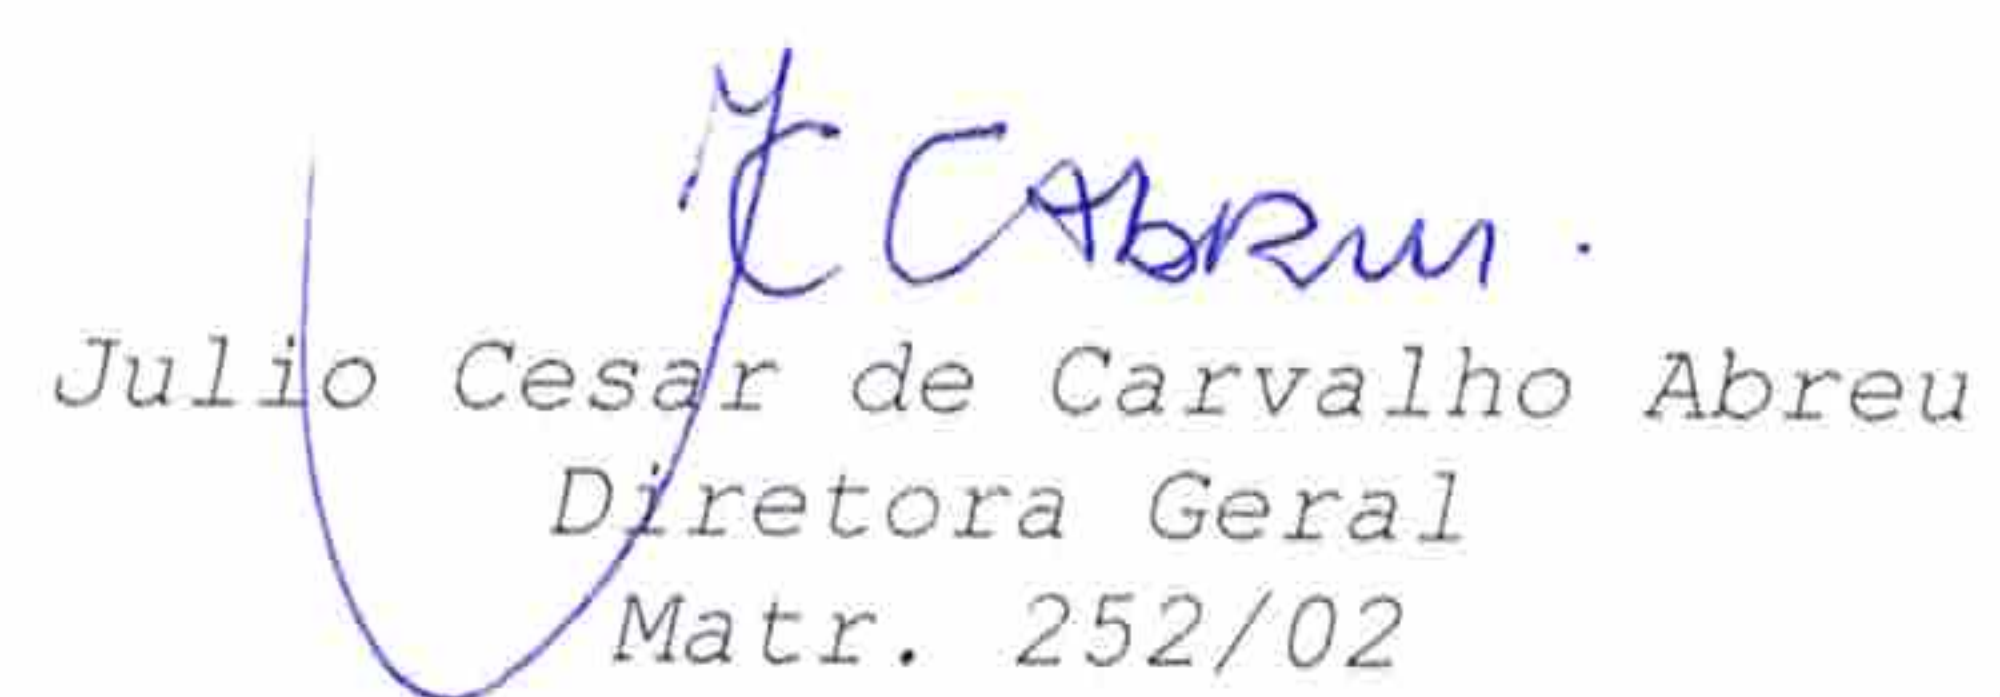 JCCAbreu.
Julio Cesar de Carvalho Abreu
Diretora Geral
Matr. 252/02